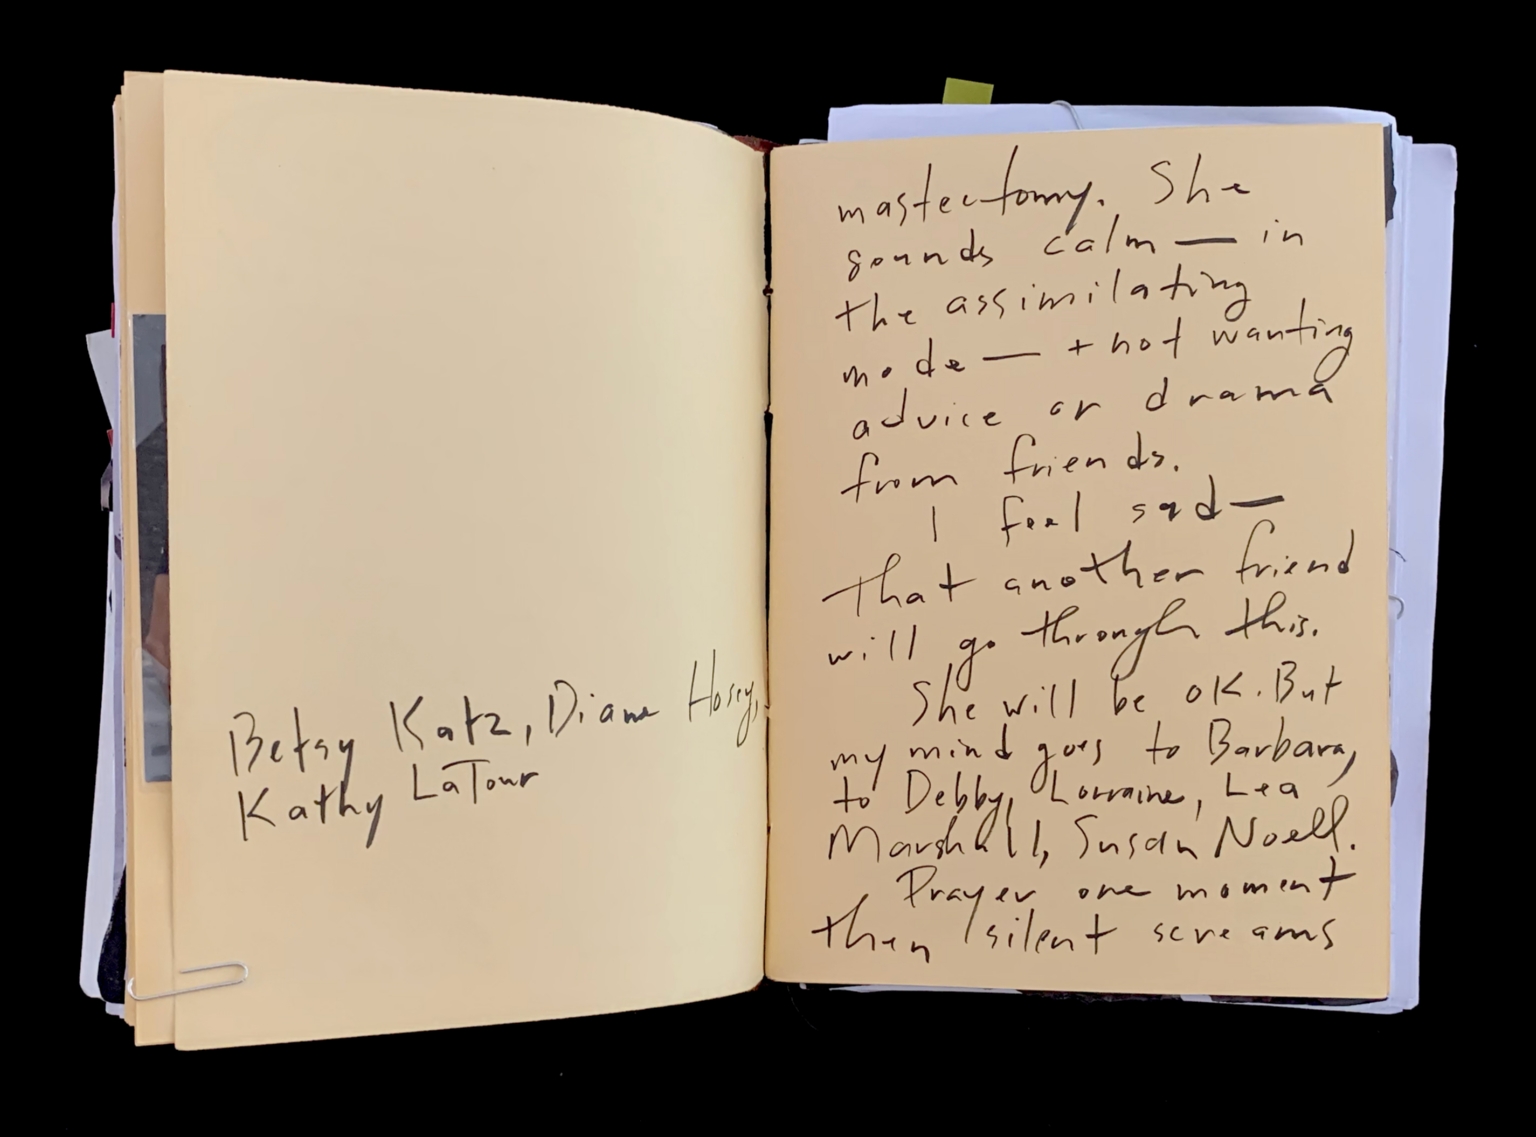 Betsy Katz, Diane Hosey,
Kathy LaTour
mastectomy. She
sounds calm — in
the assimilating
mode — + not wanting
advice or drama
from friends.
I feel sad —
that another friend
will go through this.
She will be OK. But
my mind goes to Barbara,
to Debby, Lorraine, Lea
Marshall, Susan Noell.
Prayer one moment
then silent screams